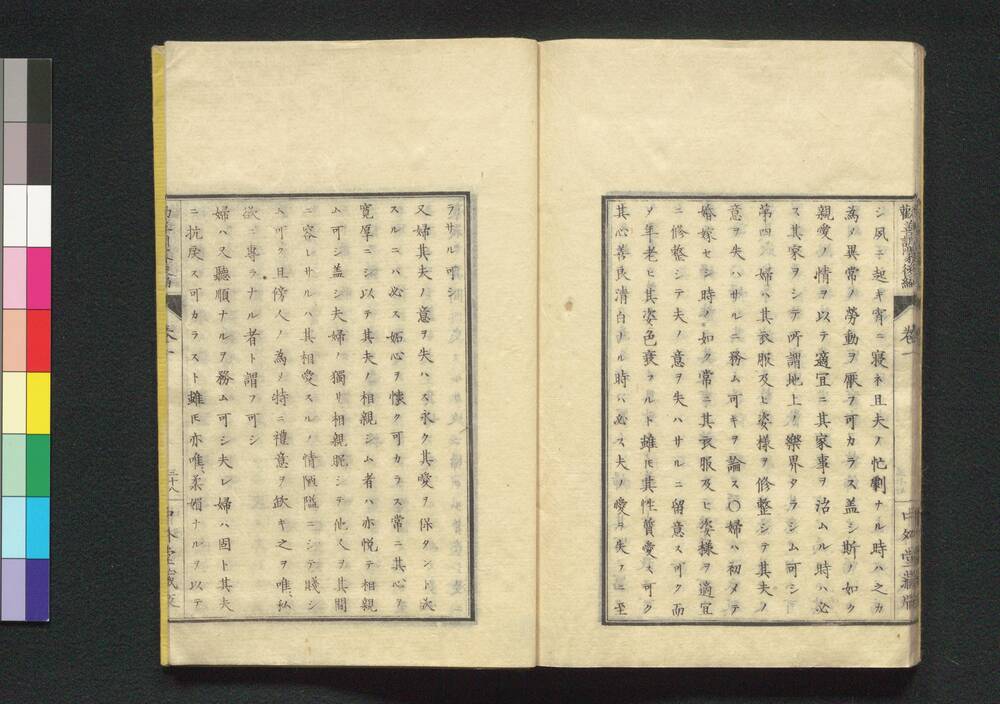 勸善訓蒙後編
卷一
中外堂藏版
シ夙ニ起キ宵ニ寢ネ且夫ノ忙劇ナル時ハ之カ
為メ異常ノ勞動ヲ厭フ可カラス盖シ斯ノ如ク
親愛ノ情ヲ以テ適宜ニ其家事ヲ治ムル時ハ必
ス其家ヲシテ所謂地上ノ樂界タラシム可シ
第四　婦ハ其衣服及ヒ姿様ヲ修整シテ其夫ノ
意ヲ失ハサルニ務ム可キヲ論ス〇婦ハ初メテ
婚嫁セシ時ノ如ク常ニ其衣服及ヒ姿様ヲ適宜
ニ修整シテ夫ノ意ヲ失ハサルニ留意ス可ク而
メ年老ヒ其姿色衰フルト雖モ其性質愛ス可ク
其心善良清白ナル時ハ必ス夫ノ愛ヲ失フニ至
ラサル可シ
又婦其夫ノ意ヲ失ハス永ク其愛ヲ保タント欲
スルニハ必ス妬心ヲ懐ク可カラス常ニ其心ヲ
寛厚ニシ以テ其夫ノ相親シム者ハ亦悦テ相親
ム可シ盖シ夫婦ノ獨リ相親昵シテ他人ヲ其間
ニ容レサルハ其相愛スルノ情陋隘ニシテ賤シ
ム可ク且傍人ノ為メ特ニ禮意ヲ缺キ之ヲ唯私
欲ニ專ラナル者ト謂フ可シ
婦ハ又聽順ナルヲ務ム可シ夫レ婦ハ固ト其夫
ニ抗戻ス可カラスト雖モ亦唯柔媚ナルヲ以テ
三十八